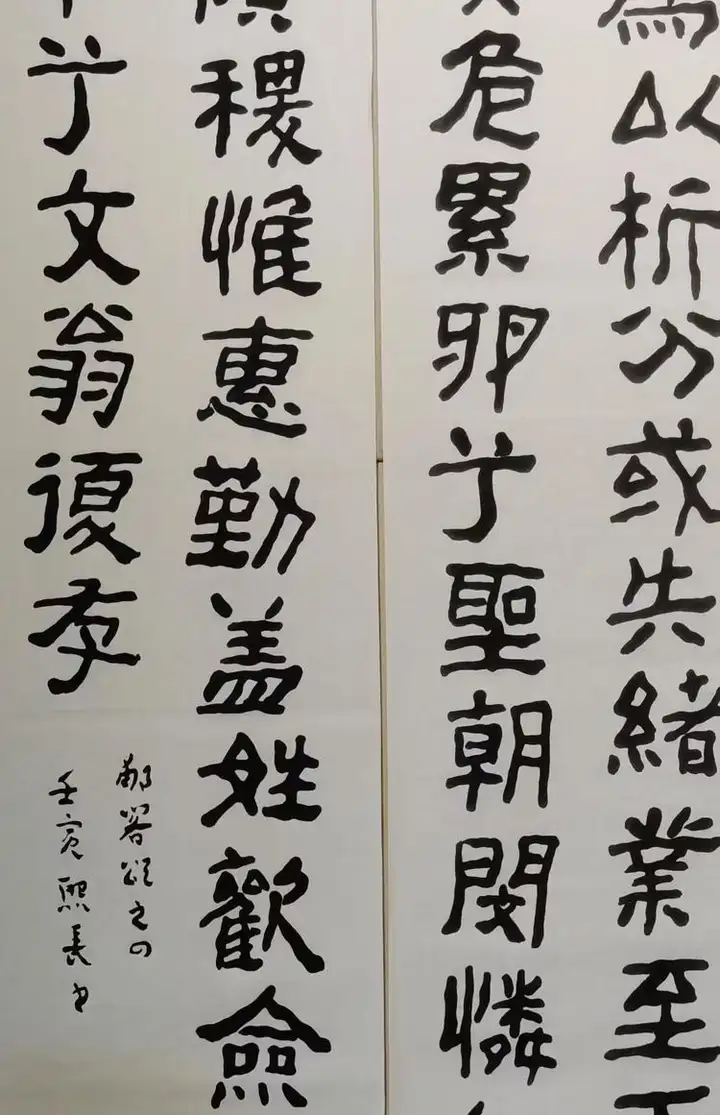 為以析分或失緒業至
危累卵兮聖朝閔憐
稷惟惠勤盖姓歡僉
兮文翁復存
郙閣頌之四
壬寅熙長书